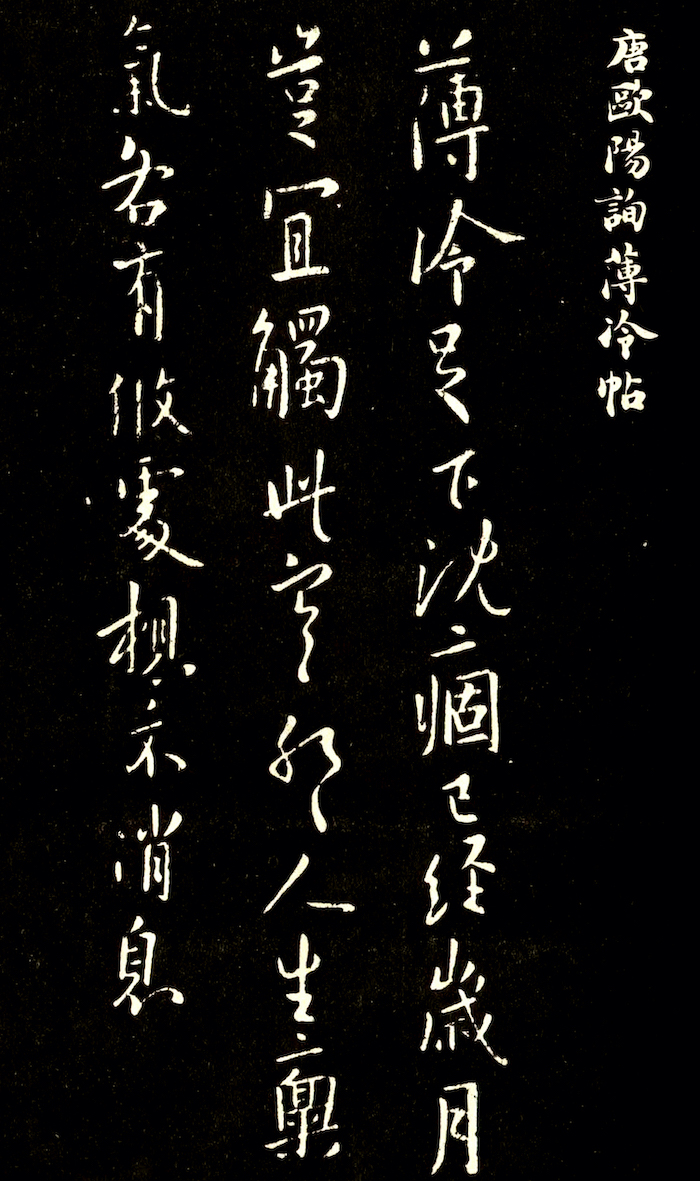 唐歐陽詢薄冷帖
薄冷足下沈痼已經歲月
豈宜觸此寒耶人生稟
氣各有攸處想示消息